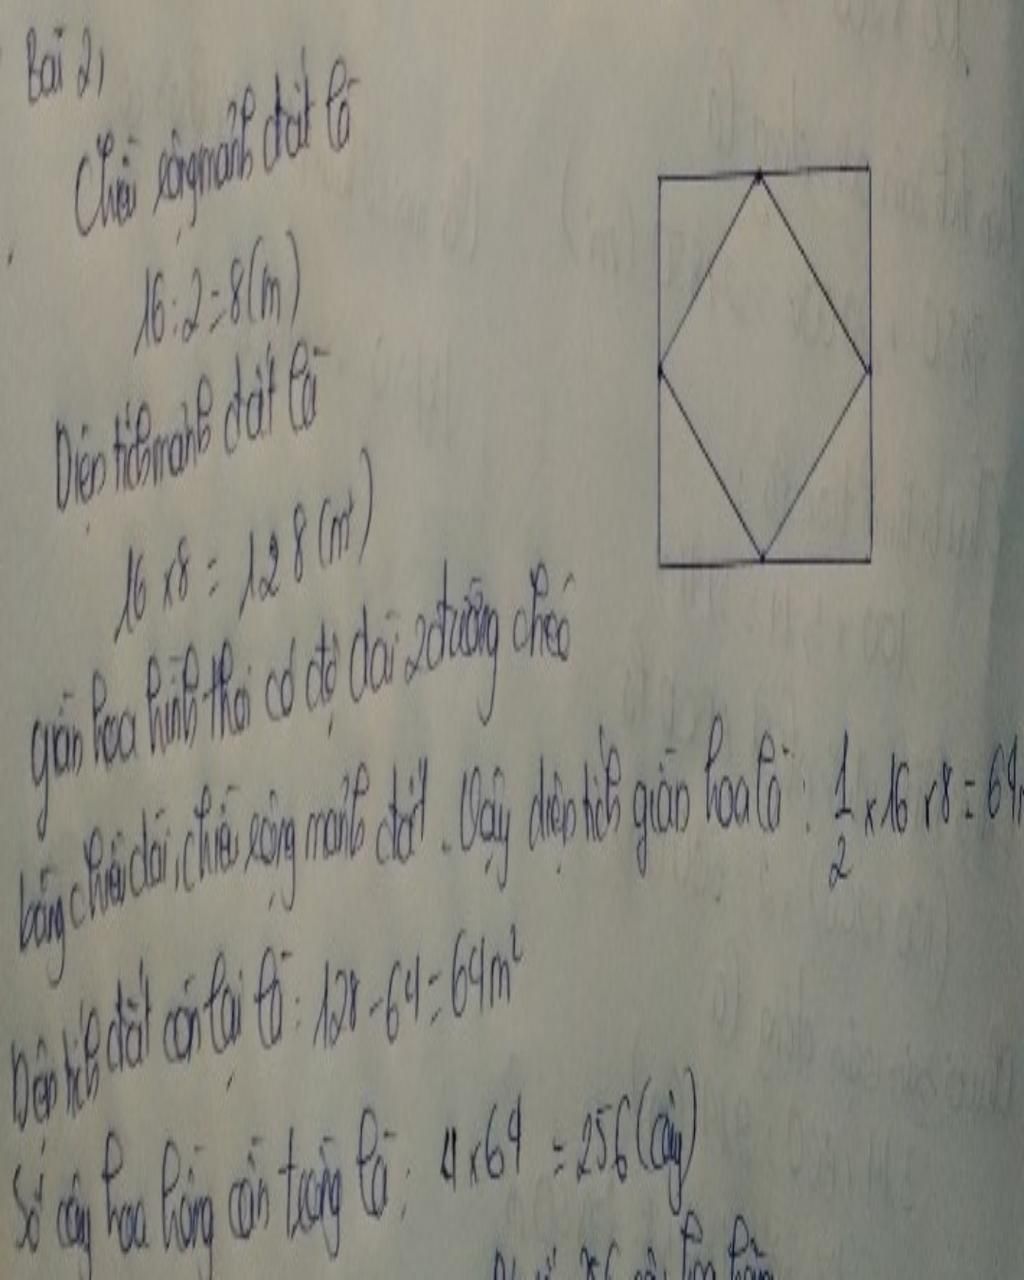 Bài 2,
Chiều rộng mảnh đất là
16 : 2 = 8 (m)
Diện tích mảnh đất là
16 x 8 = 128 (m²)
giàn hoa hình thoi có độ dài 2 đường chéo
bằng chiều dài, chiều rộng mảnh đất. Vậy diện tích giàn hoa là: 1/2 x 16 x 8 = 64
Diện tích đất còn lại là: 128 - 64 = 64m²
Số cây hoa hồng cần trồng là: 4 x 64 = 256 (cây)
256